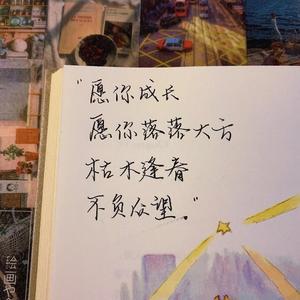 "愿你成长
愿你落落大方
枯木逢春
不负众望."
绘画